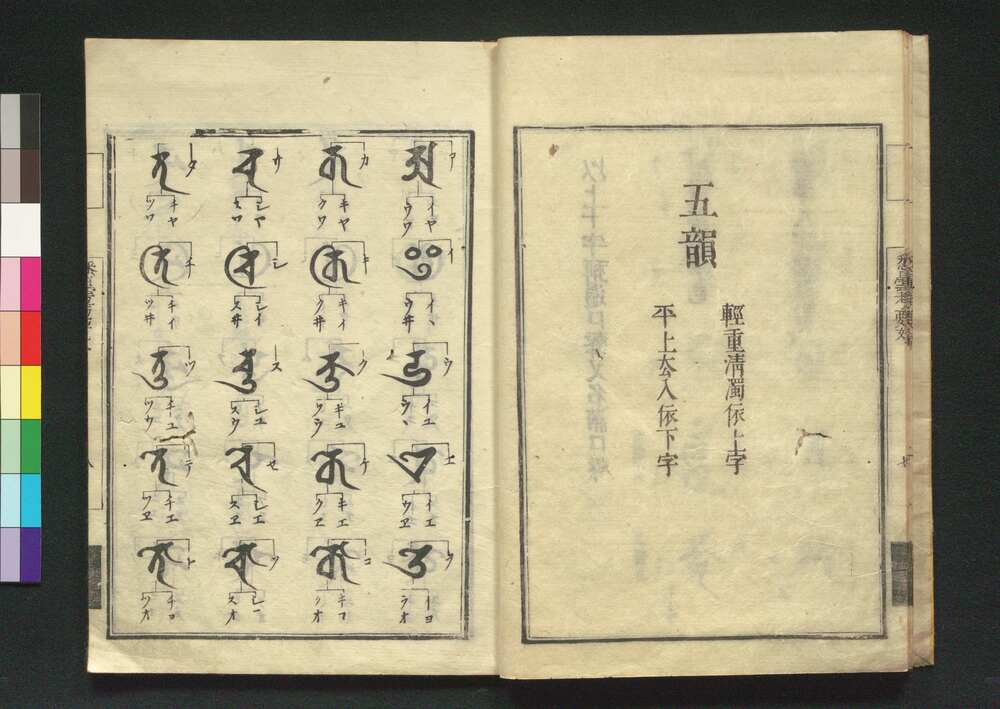 五韻
輕重清濁依上字
平上去入依下字
ア
𑖀
イヤ
ウワ
イ
𑖂
イヽ
ウ井
ウ
𑖄
イユ
ウヽ
エ
𑖊
イエ
ウヱ
𑖌
イヨ
ウオ
カ
𑖎
キヤ
クワ
キ
𑖎𑖰
キイ
ク井
ク
𑖎𑖲
キユ
クウ
ケ
𑖎𑖸
キエ
クヱ
コ
𑖎𑖺
キコ
クオ
サ
𑖭
シヤ
スワ
シ
𑖭𑖰
シイ
ス井
ス
𑖭𑖲
シユ
スウ
セ
𑖭𑖸
シエ
スヱ
ソ
𑖭𑖺
スオ
タ
𑖝
チヤ
ツワ
チ
𑖝𑖰
チイ
ツ井
ツ
𑖝𑖲
チユ
ツウ
テ
𑖝𑖸
チエ
ツヱ
ト
𑖝𑖺
チコ
ツオ